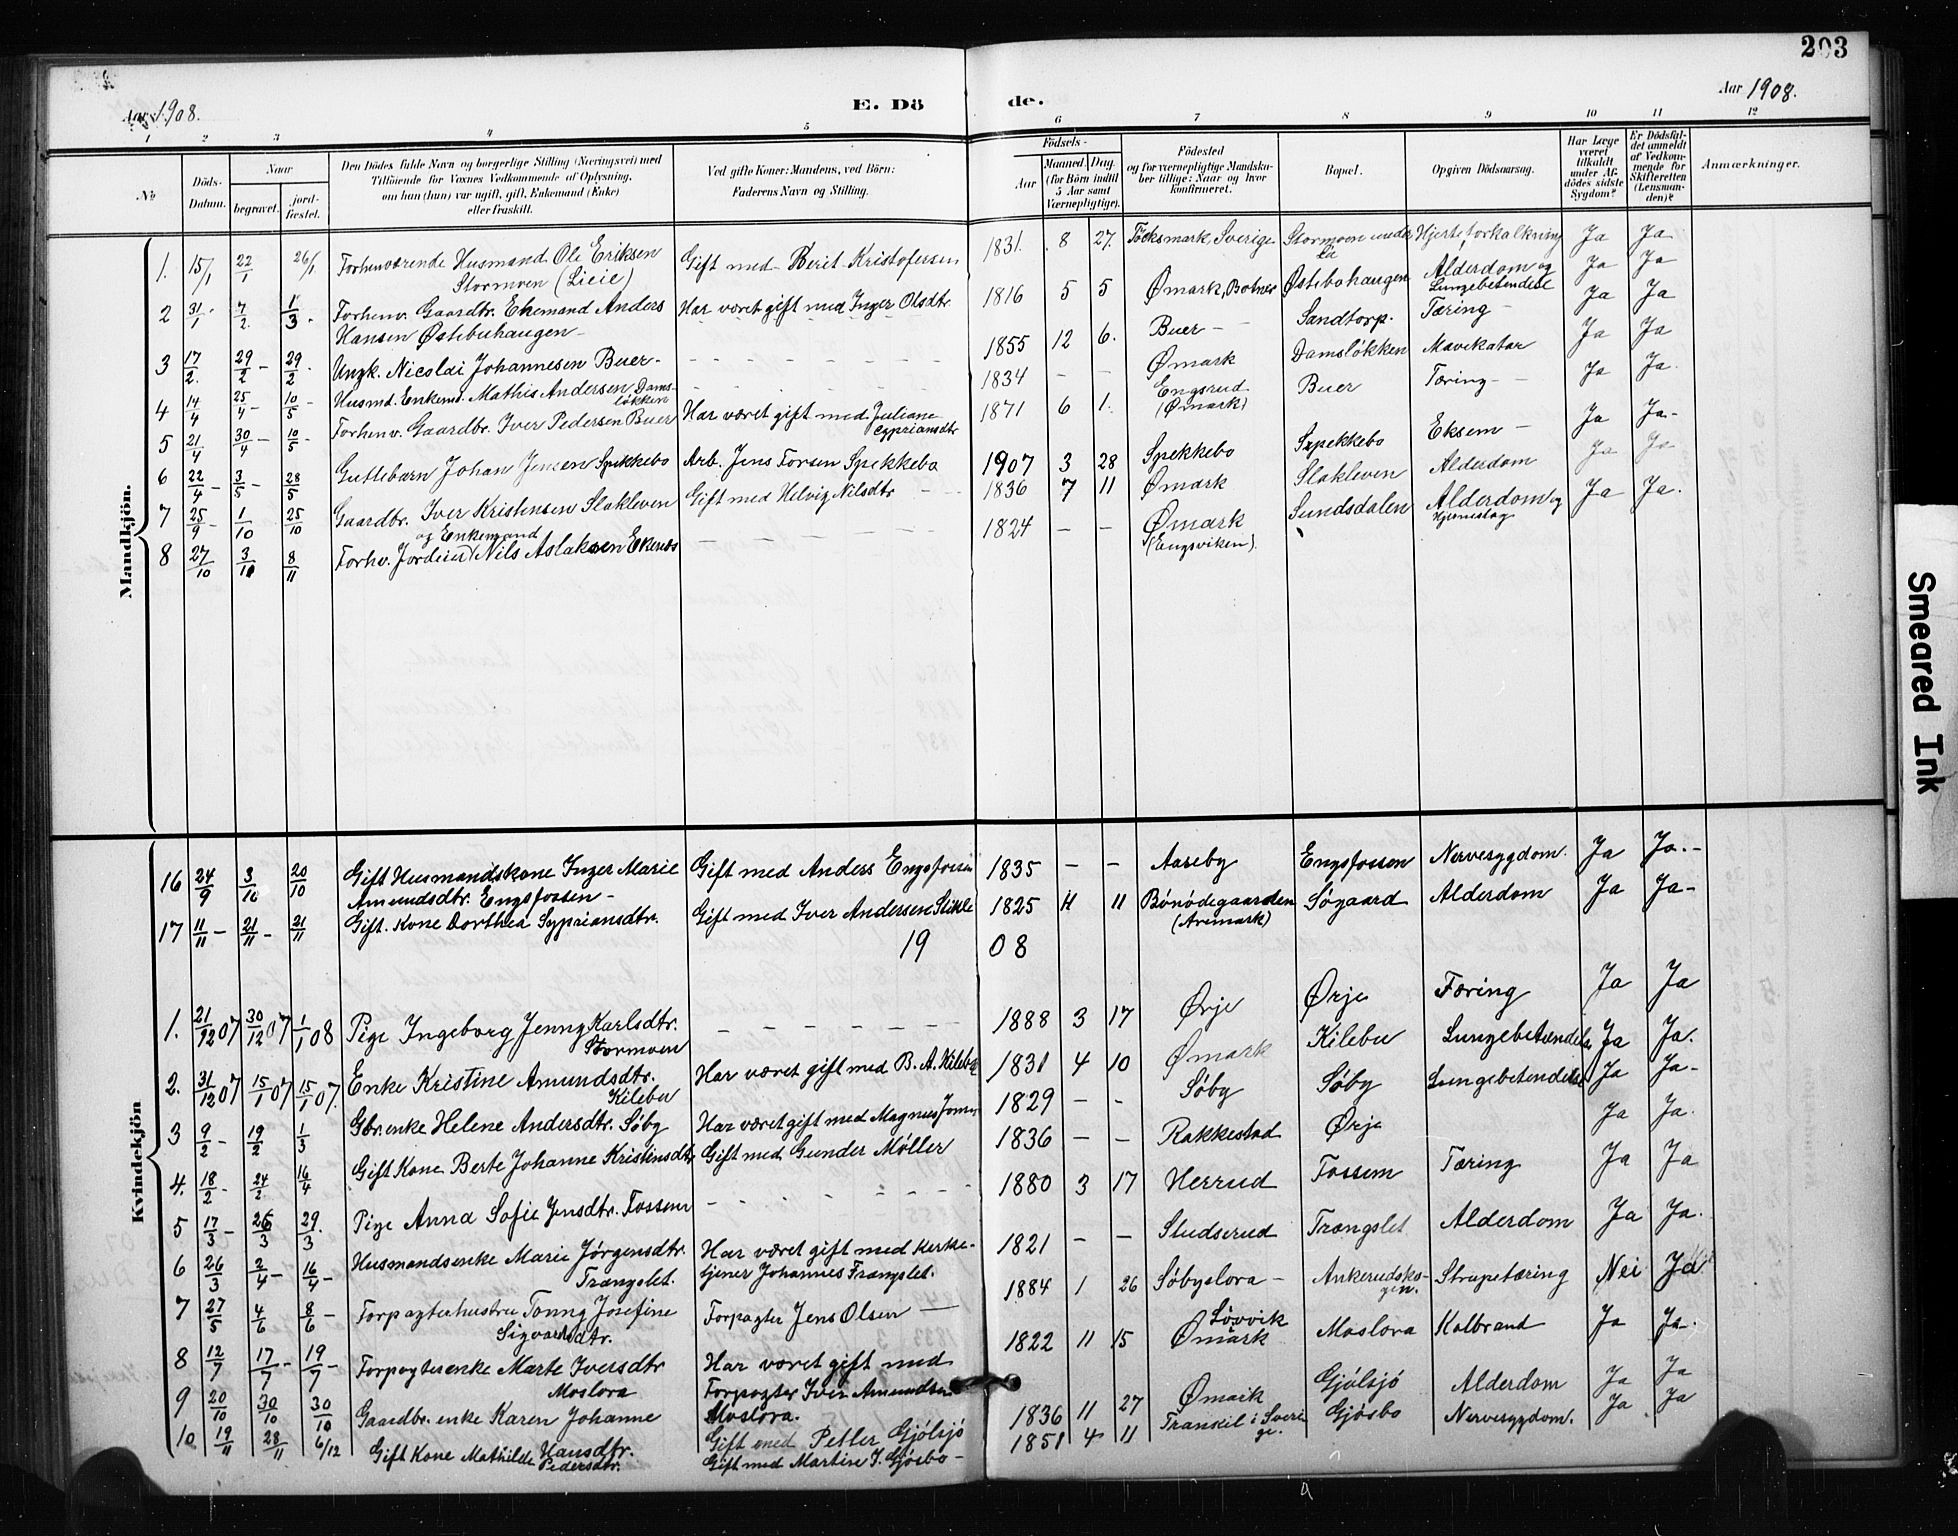 203
Aar 1908.
E. Dö de.
Aar 1908.
1 2 3 4 5 6 7 8 9 10 11 12
No
Döds-Datum.
Naar
begravet. jord-fæstet.
Den Dödes fulde Navn og borgerlige Stilling (Næringsvei) med
Tilföiende for Voxnes Vedkommende af Oplysning,
om han (hun) var ugift, gift, Enkemand (Enke)
eller fraskilt.
Ved gifte Koner: Mandens, ved Börn:
Faderens Navn og Stilling.
Födsels-
Aar
Maaned. Dag.
(for Börn indtil
5 Aar samt
Værnepligtige).
Födested
og for værnepligtige Mandska-
ber tillige: Naar og hvor
konfirmeret.
Bopæl.
Opgiven Dödsaarsag.
Har Læge
været
tilkaldt
under Af-
dödes sidste
Sygdom?
Er Dödsfal-
det anmeldt
af Vedkom-
mende for
Skifteretten
(Lensman-
den)?
Anmærkninger.
Mandkjön.
1. 15/1 22/1 26/1 Forhenværende Husmand Ole Eriksen
Stormoen (Lieie) Gift med Berit Kristofersen 1831. 8 27. Tocksmark, Sverige Stormoen under
Lie Hjerteforkalkning Ja Ja
2 31/1 7/2 1/3 Forhenv. Gaardbr. Ekemand Anders
Hansen Østebuhaugen Har været gift med Inger Olsdtr. 1816 5 5 Ømark, Botner Østebøhaugen Alderdom og
Lungebetendelse Ja Ja
3 17/2 29/2 29/2 Ungk. Nicolai Johannesen Buer 1855 12 6. Buer Sandtorp. Tæring Ja Ja
4 14/4 25/4 10/5 Husmd. Enkemd. Mathis Andersen Dams-
løkken 1834 Ømark Damsløkken Mavekatar Ja Ja
5 21/4 30/4 10/5 Forhenv. Gaardbr. Iver Pedersen Buer Har været gift med Juliane
Cypriansdtr 1871 6 1. Engsrud
(Ømark) Buer Tæring Ja Ja.
6 22/4 3/5 28/5 Guttebarn Johan Jensen Spekkebo Arb. Jens Torsen Spekkebo 1907 3 28 Spekkebo Spekkebo Eksem Ja Ja
7 25/9 1/10 25/10 Gaardbr. Iver Kristensen Slakleven Gift med Helvig Nilsdtr 1836 7 11 Ømark Slakleven Alderdom Ja Ja
8 27/10 3/11 8/11 og Enkemand
Forhv. Jordeier Nils Aslaksen Ekenæs 1824 Ømark
(Engsviken). Sundsdalen Alderdom og
Hjerneslag Ja Ja.
Kvindekjön
16 24/9 3/10 20/10 Gift Husmandskone Inger Marie
Amundsdtr. Engsfossen Gift med Anders Engsfossen 1835 Aareby Engsfossen Nervesygdom. Ja Ja.
17 11/11 21/11 21/11 Gift. Kone Dorthea Sypriansdtr. Gift med Iver Andersen Stikle 1825 11 Bønødegaarden
(Aremark) Søgaard Alderdom Ja Ja
1908
1. 21/12 07 30/12 07 1/1 08 Pige Ingeborg Jenny Karlsdtr.
Stormoen 1888 3 17 Ørje Ørje Tæring Ja Ja
2. 31/12 07 15/1 07 15/1 07. Enke Kristine Amundsdtr.
Kilebu Har været gift med B. A. Kilebu 1831 4 10 Ømark Kilebu Lungebetændelse Ja Ja.
3 9/2 19/2 1/3 Gbr. enke Helene Andersdtr. Søby Har været gift med Magnus 1829 Søby Søby Lungebetendelse Ja Ja
4. 18/2 24/2 16/4 Gift Kone Berte Johanne Kristensdtr Gift med Gunder Møller 1836 Rakkestad Ørje Ja Ja.
5 17/3 26/3 29/3 Pige Anna Sofie Jensdtr. Fossem 1880 3 17 Herrud Fossem Tæring Ja Ja
6 26/3 2/4 16/4 Husmandsenke Marie Jørgensdtr.
Trængslet. Har været gift med Kerke-
tjener Johannes Trængslet. 1821 Studserud Trængslet Alderdom Ja Ja.
7 27/5 4/6 8/6 Forpagterhustru Tonny Josefine
Sigvartsdtr. Forpagter Jens Olsen 1884 1 26 Søbyslora Ankerudsko-
gen. Strupetæring Nei Ja
8 12/7 17/7 19/7 Forpagterenke Marte Iversdtr
Moslora Har været gift med
Forpagter Iver Amundsen
Moslora. 1822 11 15 Løvvik
Ømark Moslora Kolbrand Ja Ja.
9 20/10 30/10 30/10 Gaardbr. enke Karen Johanne
Hansdtr. Gift med Petter Gjølsjø 1836 11 27 Ømark Gjølsjø Alderdom Ja Ja
10 19/11 28/11 6/12 Gift Kone Mathilde
Pedersdtr. Gift med Martin J. Gjøsbo 1851 4 11 Trankil i Sveri
ge. Gjøsbo Nervesygdom. Ja Ja
Smeared Ink